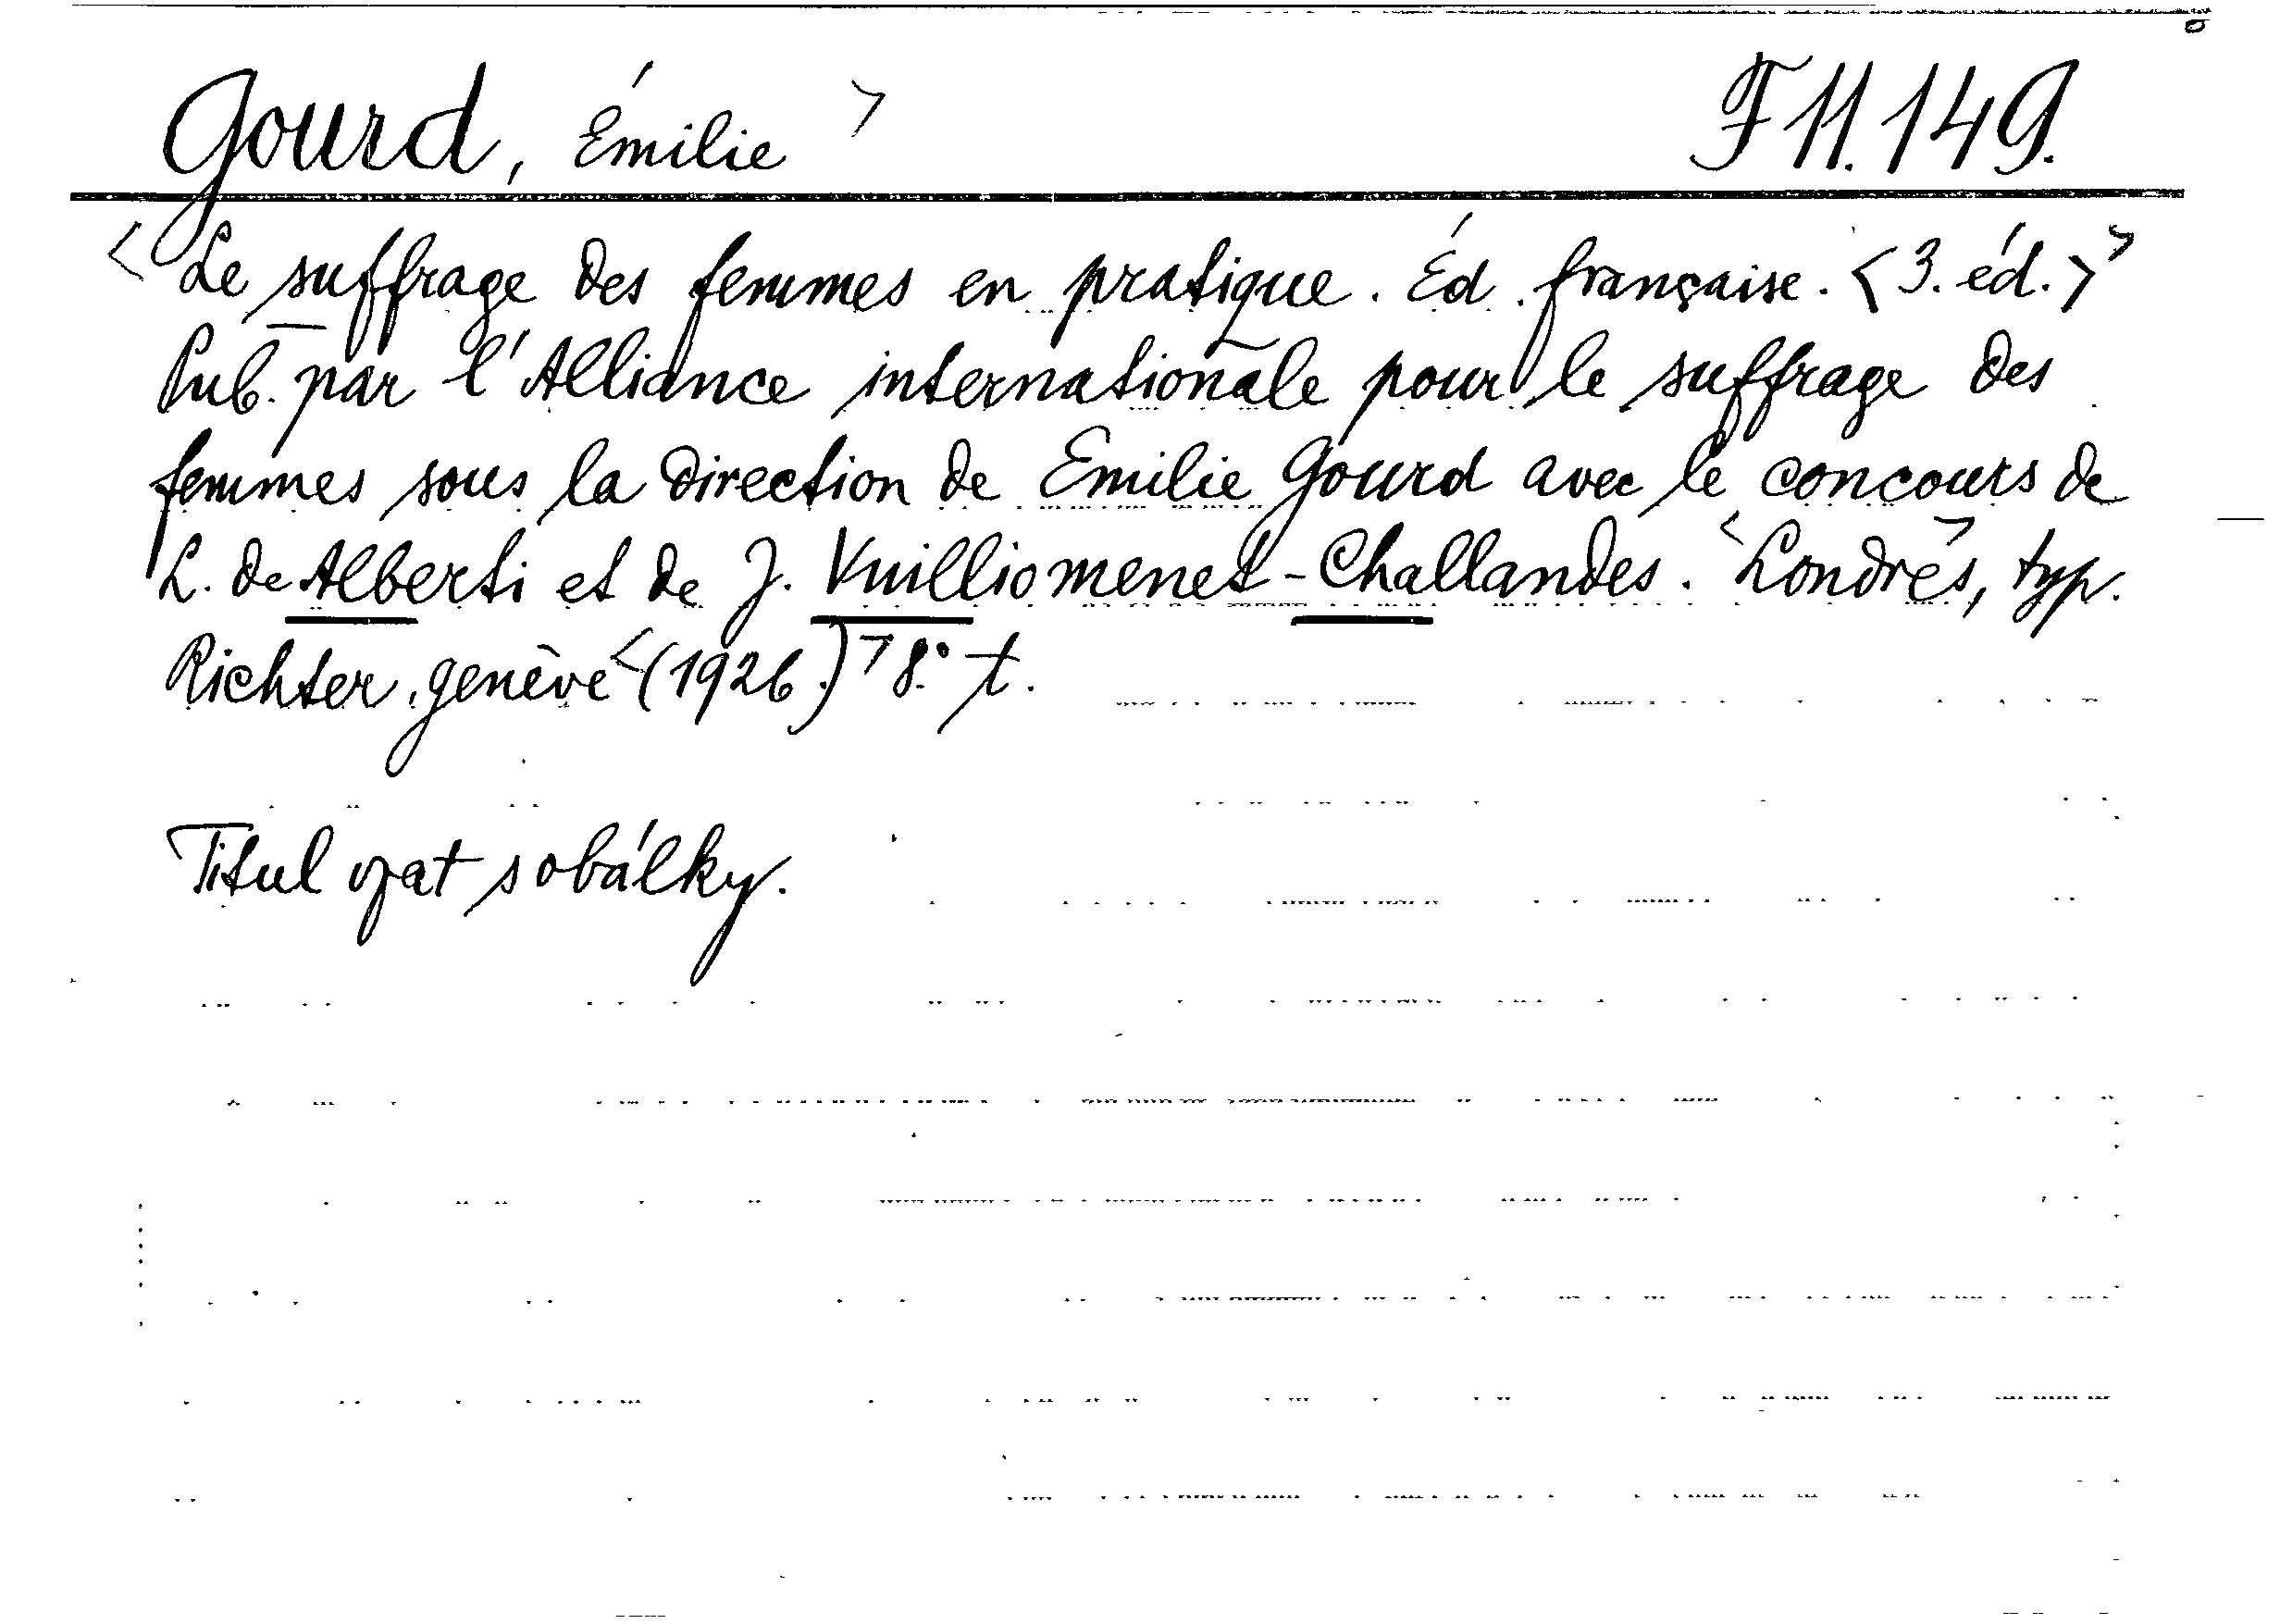 Gourd, Émilie > F 11.149.
<Le suffrage des femmes en pratique. Éd. française. <3. éd.>>
Pub. par l'Alliance internationale pour le suffrage des
femmes sous la direction de Emilie Gourd avec le concours de
L. de Alberti et de J. Vuilliomenet-Challandes. <Londres>, typ.
Richter, genève <(1926.)> 8° t.
Titul vzat s obálky.